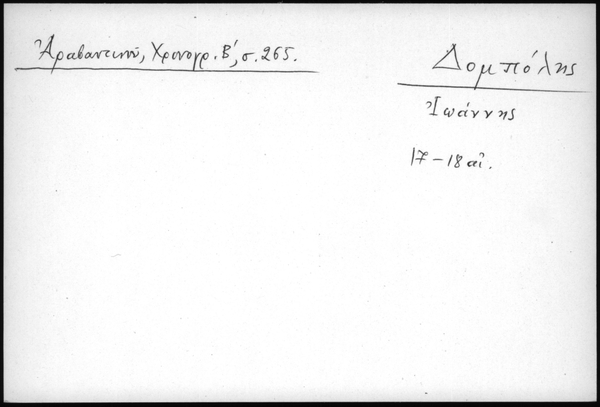 Ἀραβαντινοῦ, Χρονογρ. Β', σ. 265.
Δομπόλης
Ἰωάννης
17 – 18 αἰ.